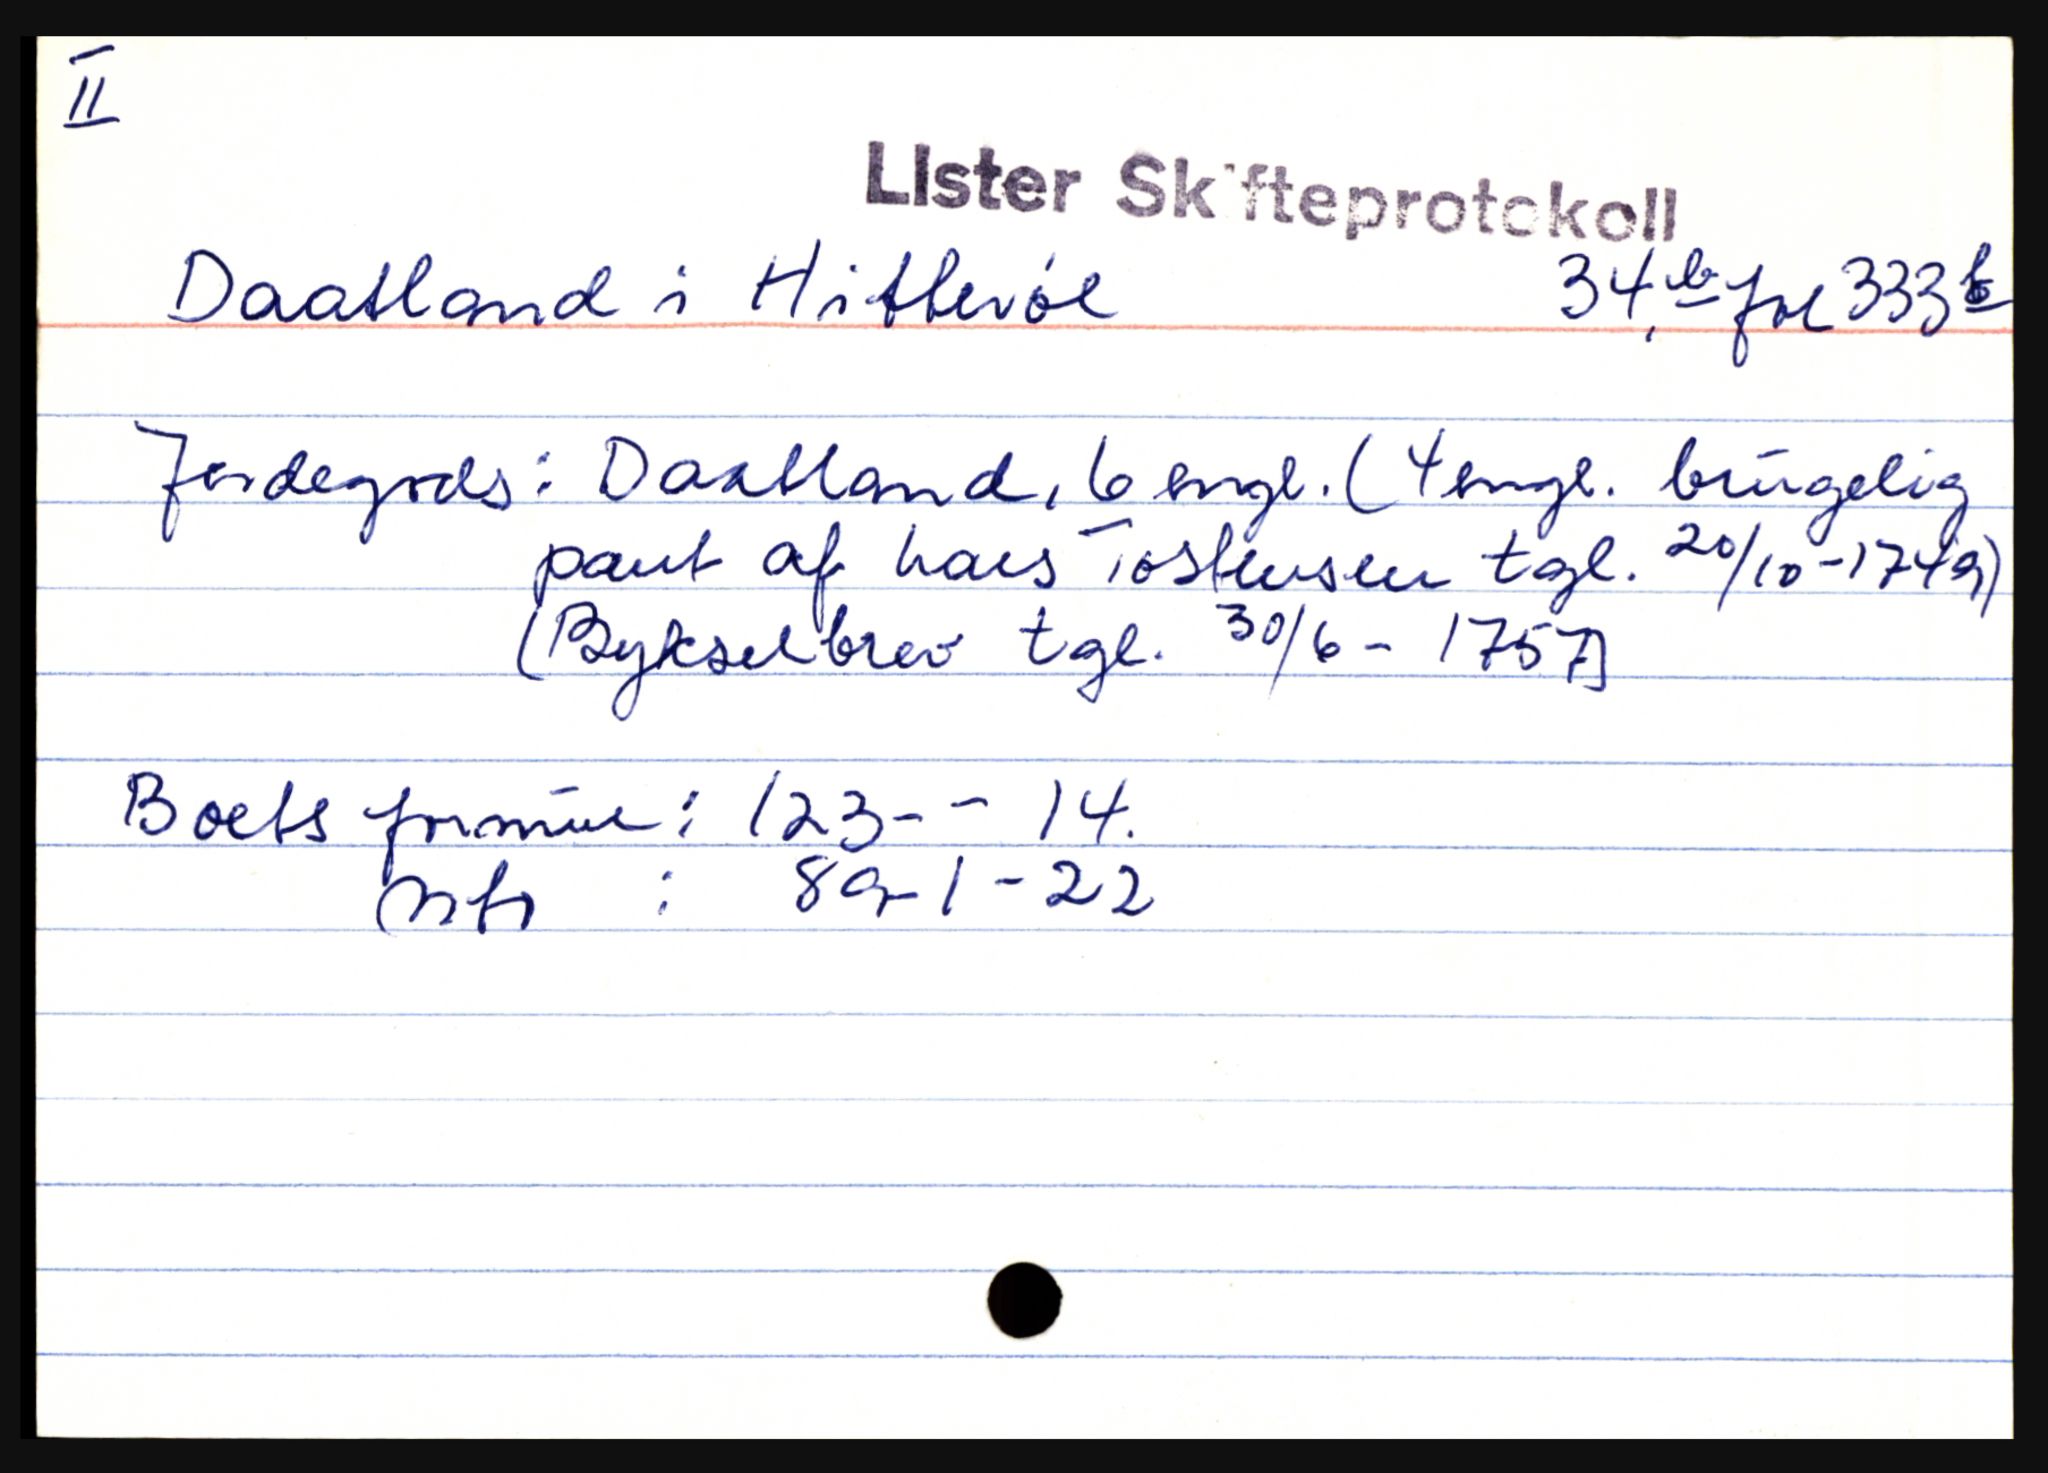 II
LIster Skifteprotokoll
Daatland i Hitterøe 34,b fol 333b
Jordegods: Daatland, 6 engl. (4 engl. brügelig
pant af Lars Tostensen tgl. 20/10-1749)
(Bykselbrev tgl. 30/6 - 1757)
Boets formüe: 123-- 14.
: 89-1-22